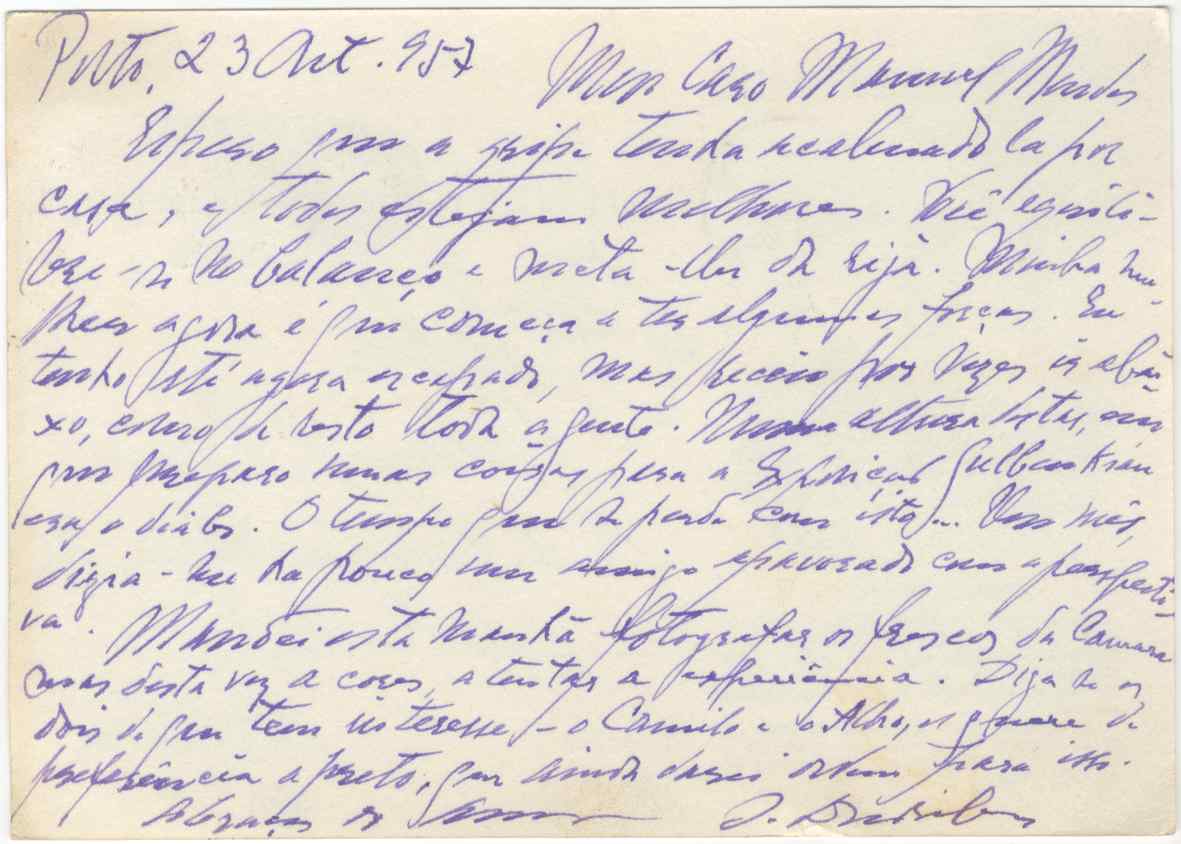 Porto, 23 Out. 957
Meu Caro Manuel Mendes
Espero que a gripe tenha acalmado la por
casa, e todos estejam melhores. Você equili-
bre-se no balanço e meta-lhe da rija. Minha mu-
lher agora é que começa a ter algumas forças. Eu
tenho até agora escapado, mas receio por vezes ir abai-
xo, como de resto toda a gente. Numa altura destas, em
que preparo umas coisas para a Exposição Gulbenkian
era o diabo. O tempo que se perde com isto... Um mês,
dizia-me ha pouco um amigo apavorado com a perspecti-
va. Mandei esta manhã fotografar os frescos da Camara
mas desta vez a cores, a tentar a experiência. Diga se os
dois de que tem interesse - o Camilo e o Alho, os quere de
preferência a preto, que ainda darei ordem para isso.
Abraços do